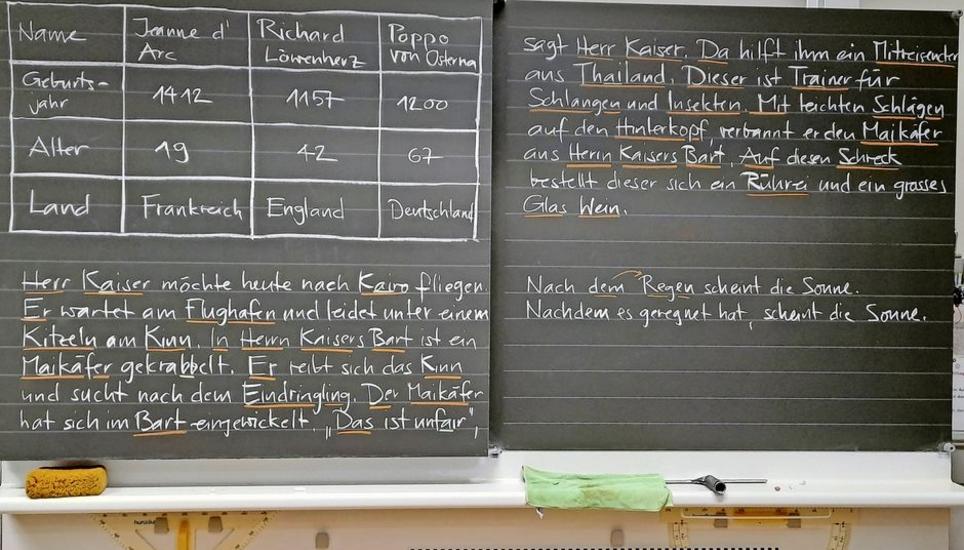 Name Jeanne d' Arc Richard Löwenherz Poppo von Osterna
Geburts-jahr 1412 1157 1200
Alter 19 42 67
Land Frankreich England Deutschland
Herr Kaiser möchte heute nach Kairo fliegen.
Er wartet am Flughafen und leidet unter einem
Kitzeln am Kinn. In Herrn Kaisers Bart ist ein
Maikäfer gekrabbelt. Er reibt sich das Kinn
und sucht nach dem Eindringling. Der Maikäfer
hat sich im Bart eingewickelt. „Das ist unfair",
sagt Herr Kaiser. Da hilft ihm ein Mitreisender
aus Thailand. Dieser ist Trainer für
Schlangen und Insekten. Mit leichten Schlägen
auf den Hinterkopf, verbannt er den Maikäfer
aus Herrn Kaisers Bart. Auf diesen Schreck
bestellt dieser sich ein Rührei und ein grosses
Glas Wein.
Nach dem Regen scheint die Sonne.
Nachdem es geregnet hat, scheint die Sonne.